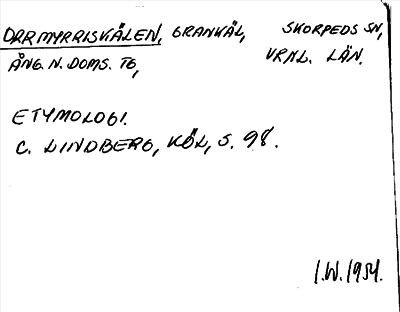 ORRMYRRISKÄLEN, GRANKÄL, SKORPEDS SN,
ÅNG. N. DOMS. TG, VRNL. LÄN.
ETYMOLOGI.
C. LINDBERG, KÖL, S. 98.
I.W. 1954.